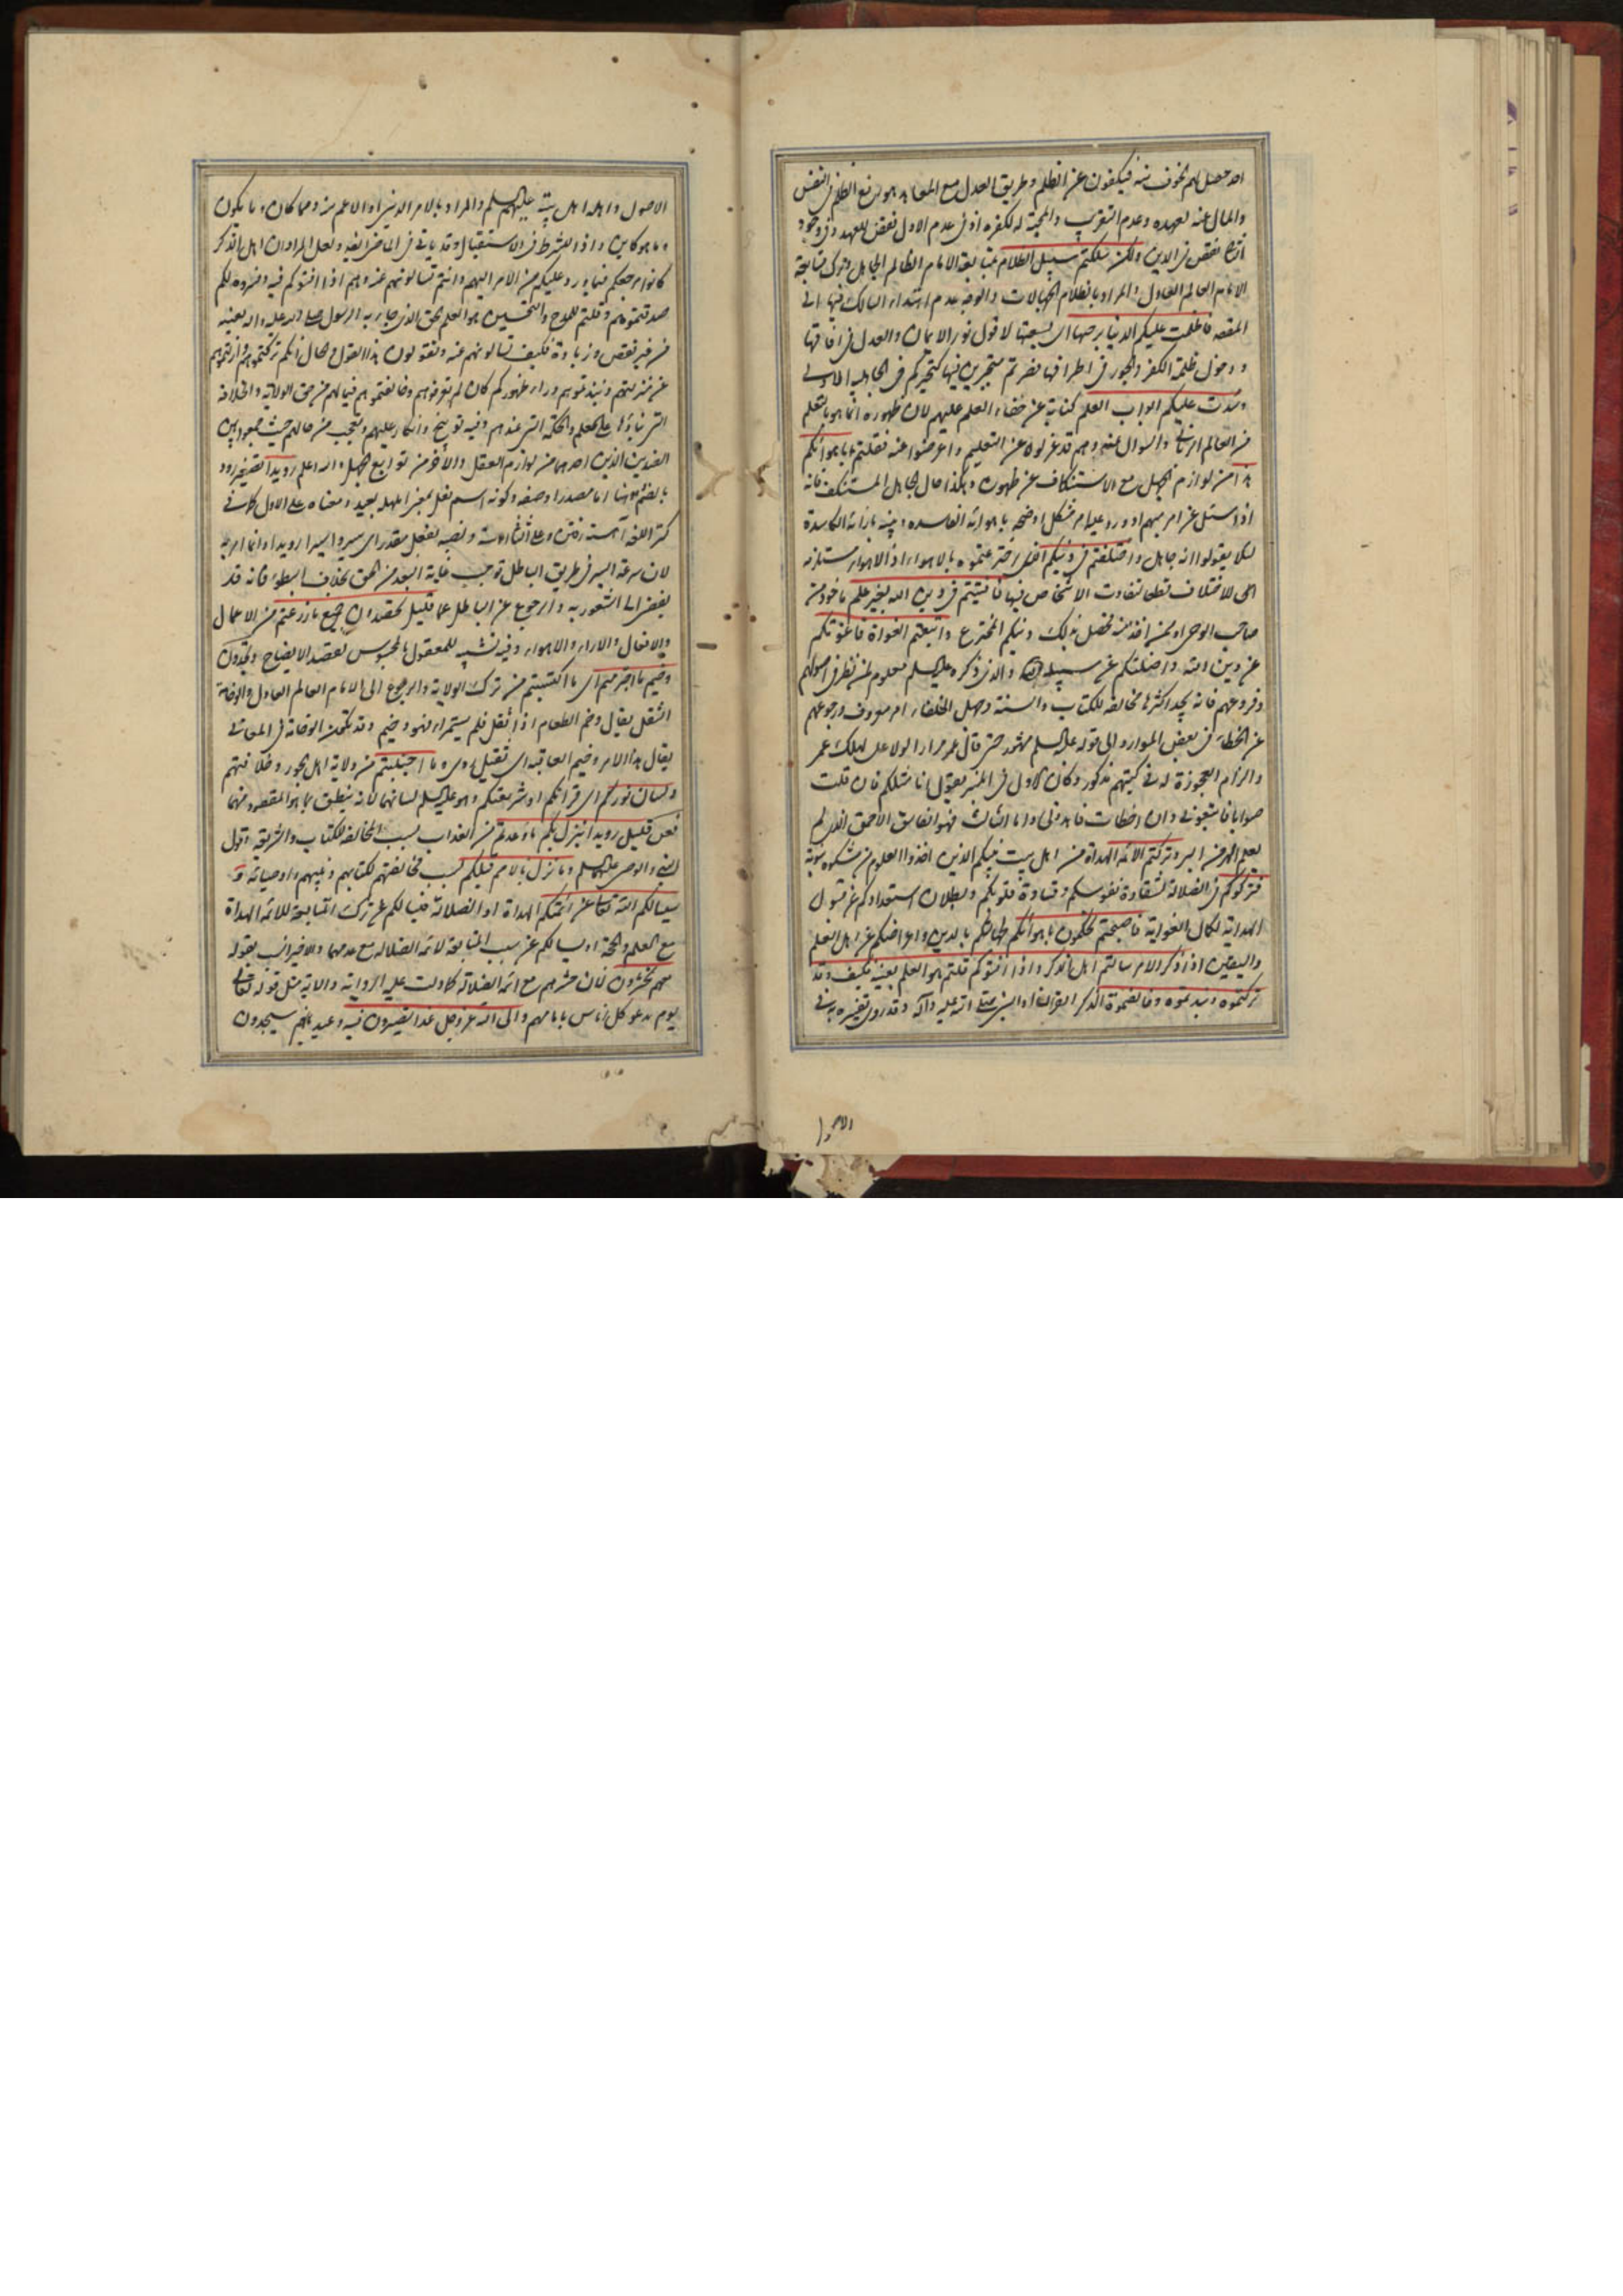 احد حصل لهم الخوف منه فيكفون عن الظلم وطريق العدل مع المعاهد هو رفع الظلم في النفس
والمال عنه لعهده وعدم التقرب والمحبة له لكفره اذ في عدم الاول نقض للعهد وفي وجود
الثاني نقص في الدين ولكن سلكتم سبيل الظلام بمتابعة الامام الظالم الجاهل وترك متابعة
الامام العالم العادل والمراد بالظلام الجهالات والوجه عدم اهتداء السالك فيها الى
المقصد فاظلمت عليكم الدنيا برحبها اى بسعتها لافول نور الايمان والعدل في افاقها
ودخول ظلمة الكفر والجور في اطرافها فصرتم متحيرين فيها كتحيركم في الجاهلية الاولى
وسدت عليكم ابواب العلم كناية عن خفاء العلم عليهم لان ظهوره انما هو بالتعلم
من العالم الرباني والسوال عنه وهم قد عزلوه عن التعليم واعرضوا عنه فقلتم باهوائكم
هذا من لوازم الجهل مع الاستنكاف عن ظهوره وهكذا حال الجاهل المستنكف فانه
اذا سئل عن امر مبهم او ورد عليه امر مشكل اوضحه باهوائه الفاسدة وبينه بآرائه الكاسدة
لئلا يقولوا انه جاهل واختلفتم في دينكم الذى اخترعتموه بالاهواء اذ الاهواء مستلزمة
للاختلاف قطعا لتفاوت الاشخاص فيها فافتيتم في دين الله بغير علم ماخوذ من
صاحب الوحى او ممن اخذ منه فضل بذلك دينكم المخترع واتبعتم الغواة فاغوتكم
عن دين الله واضلتكم عن سبيله والذى ذكره عليه السلم معلوم لمن نظر في اصولهم
وفروعهم فانه يجد اكثرها مخالفة للكتاب والسنة وجهل الخلفاء امر معروف ورجوعهم
عن الخطاء في بعض الموارد الى قوله عليه السلم مشهور حتى قال عمر مرارا لولا على لهلك عمر
والزام العجوزة له في كتبهم مذكور وكان الاول في المنبر يقول انا مثلكم فان قلت
صوابا فاتبعوني وان اخطات فاهدوني واما الثالث فهو الفاسق الاحمق الذى لم
يعلم الهر من البر وتركتم الائمة الهداة من اهل بيت نبيكم الذين اخذوا العلوم من مشكوة نبوته
فتركوكم في الضلالة لشقاوة نفوسكم وقساوة قلوبكم وبطلان استعدادكم عن قبول
الهداية لكمال الغواية فاصبحتم تحكمون باهوائكم لجهالتكم بالدين واعراضكم عن اهل العلم
واليقين اذا ذكر الامر سالتم اهل الذكر واذا افتوكم قلتم هو العلم بعينه فكيف وقد
تركتموه ونبذتموه وخالفتموه الذكر القرآن او النبى صلى الله عليه وآله وقد روى تفسيره به في
الاصول
الاصول واهله اهل بيته عليهم السلم والمراد بالامر الدينى او الاعم منه ومما كان وما يكون
وما هو كاين واذا للشرط في الاستقبال وقد ياتي في الماضى ايضا ولعل المراد ان اهل الذكر
كانوا مرجعكم فيما يرد عليكم من الامر المبهم وانتم تسالونهم عنه وهم اذا افتوكم فيه وفسروه لكم
صدقتموهم وقلتم للمدح والتحسين هو العلم الحق الذى جاء به الرسول صلى الله عليه واله بعينه
من غير نقص وزيادة فكيف تسالونهم عنه وتقولون هذا القول والحال انكم تركتموهم وازلتموهم
عن منزلتهم ونبذتموهم وراء ظهوركم كان لم تعرفوهم وخالفتموهم فيما لهم من حق الولاية والخلافة
التى بناؤها على العلم والحكمة التى عندهم وفيه توبيخ وانكار عليهم وتعجب من حالهم حيث جمعوا بين
الضدين الذين احدهما من لوازم العقل والاخر من توابع الجهل والله اعلم رويدا تصغير رود
بالضم وهو هنا اما مصدر او صفة وكونه اسم فعل بمعنى امهله بعيد ومعناه على الاول كما في
كنز اللغة آهسته رفتن وعلى الثاني آهسته ونصبه بفعل مقدر اى سيروا سيرا رويدا وانما امر به
لان سرعة السير في طريق الباطل توجب غاية البعد من الحق بخلاف البطوء فانه قد
يفضى الى الشعور به والرجوع عن الباطل عما قليل تحصدون جميع ما زرعتم من الاعمال
والافعال والاراء والاهواء وفيه تشبيه للمعقول بالمحسوس لقصد الايضاح وتجدون
وخيم ما اجترمتم اى ما اكتسبتم من ترك الولاية والرجوع الى الامام العالم العادل والوخامة
الثقل يقال وخم الطعام اذا ثقل فلم يستمرء فهو وخيم وقد تكون الوخامة في المعاني
يقال هذا الامر وخيم العاقبة اى ثقيل ردى وما اجتلبتم من ولاية اهل الجور وخلافتهم
ولسان نوركم اى قرآنكم او شريعتكم وهو عليه السلم لسانهما لانه ينطق بما هو المقصود منهما
فعن قليل رويدا ينزل بكم ما وعدتم من العذاب بسبب المخالفة للكتاب والشريعة وقول
النبى والوصى عليهما السلم وما نزل بالامم قبلكم بسبب مخالفتهم لكتابهم ونبيهم واوصيائه و
سيسالكم الله تعالى عن ائمتكم الهداة او الضلالة فيسالكم عن ترك المتابعة للائمة الهداة
مع العلم والحجة او يسالكم عن سبب المتابعة لائمة الضلالة مع عدمهما والاخير انسب بقوله
معهم تحشرون فان حشرهم مع ائمة الضلالة كما دلت عليه الرواية والاية مثل قوله تعالى
يوم ندعو كل اناس بامامهم والى الله عز وجل غدا تصيرون فيه وعيد بانهم سيجدون